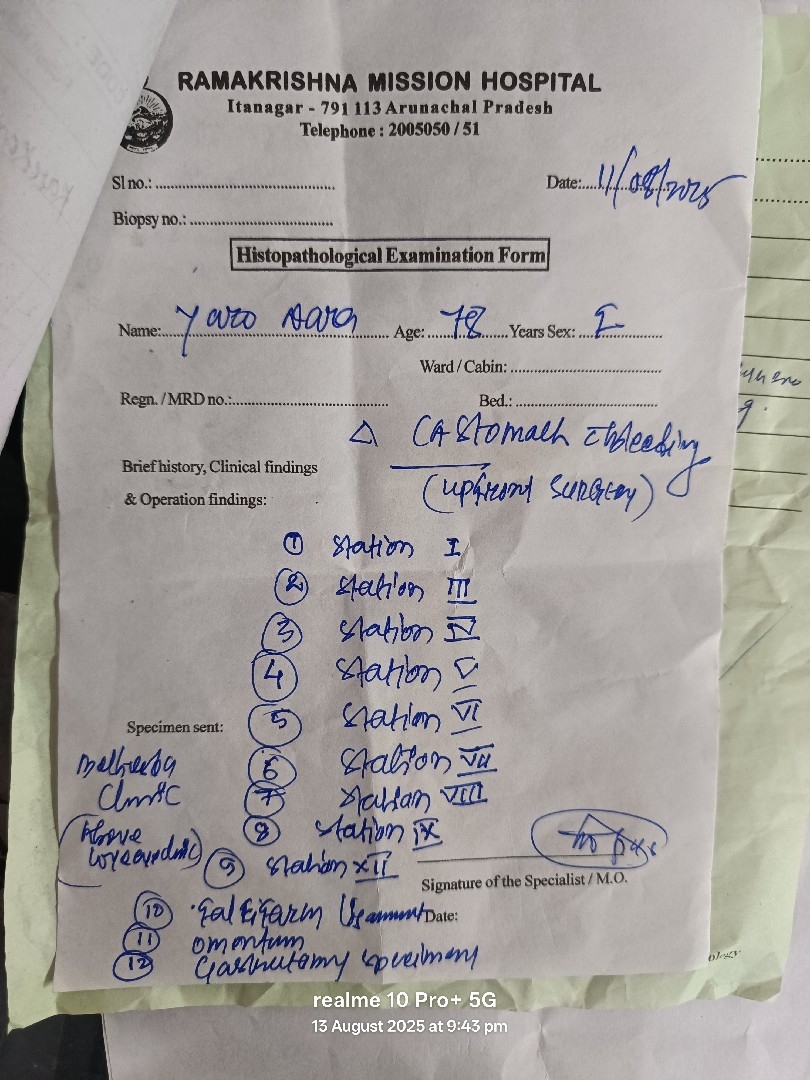 RAMAKRISHNA MISSION HOSPITAL
Itanagar - 791 113 Arunachal Pradesh
Telephone : 2005050 / 51
Sl no.: ........................................
Date:....11/08/2025
Biopsy no.: ........................................
Histopathological Examination Form
Name: Yaro Age: 78 Years Sex:
Ward / Cabin: ........................................
Regn. / MRD no.:........................................ Bed.: ........................................
△ CA Stomach bleeding
Brief history, Clinical findings
(upfront surgery)
& Operation findings:
① Station I
② Station III
③ Station IV
④ Station V
⑤ Station VI
Specimen sent:
⑥ Station VII
Clinic
⑦ Station VIII
⑧ Station IX
(Above
⑨ Station XII
Signature of the Specialist / M.O.
⑩ Falciform ligament Date:
⑪ omentum
⑫ Gastrectomy specimen
ology
realme 10 Pro+ 5G
13 August 2025 at 9:43 pm